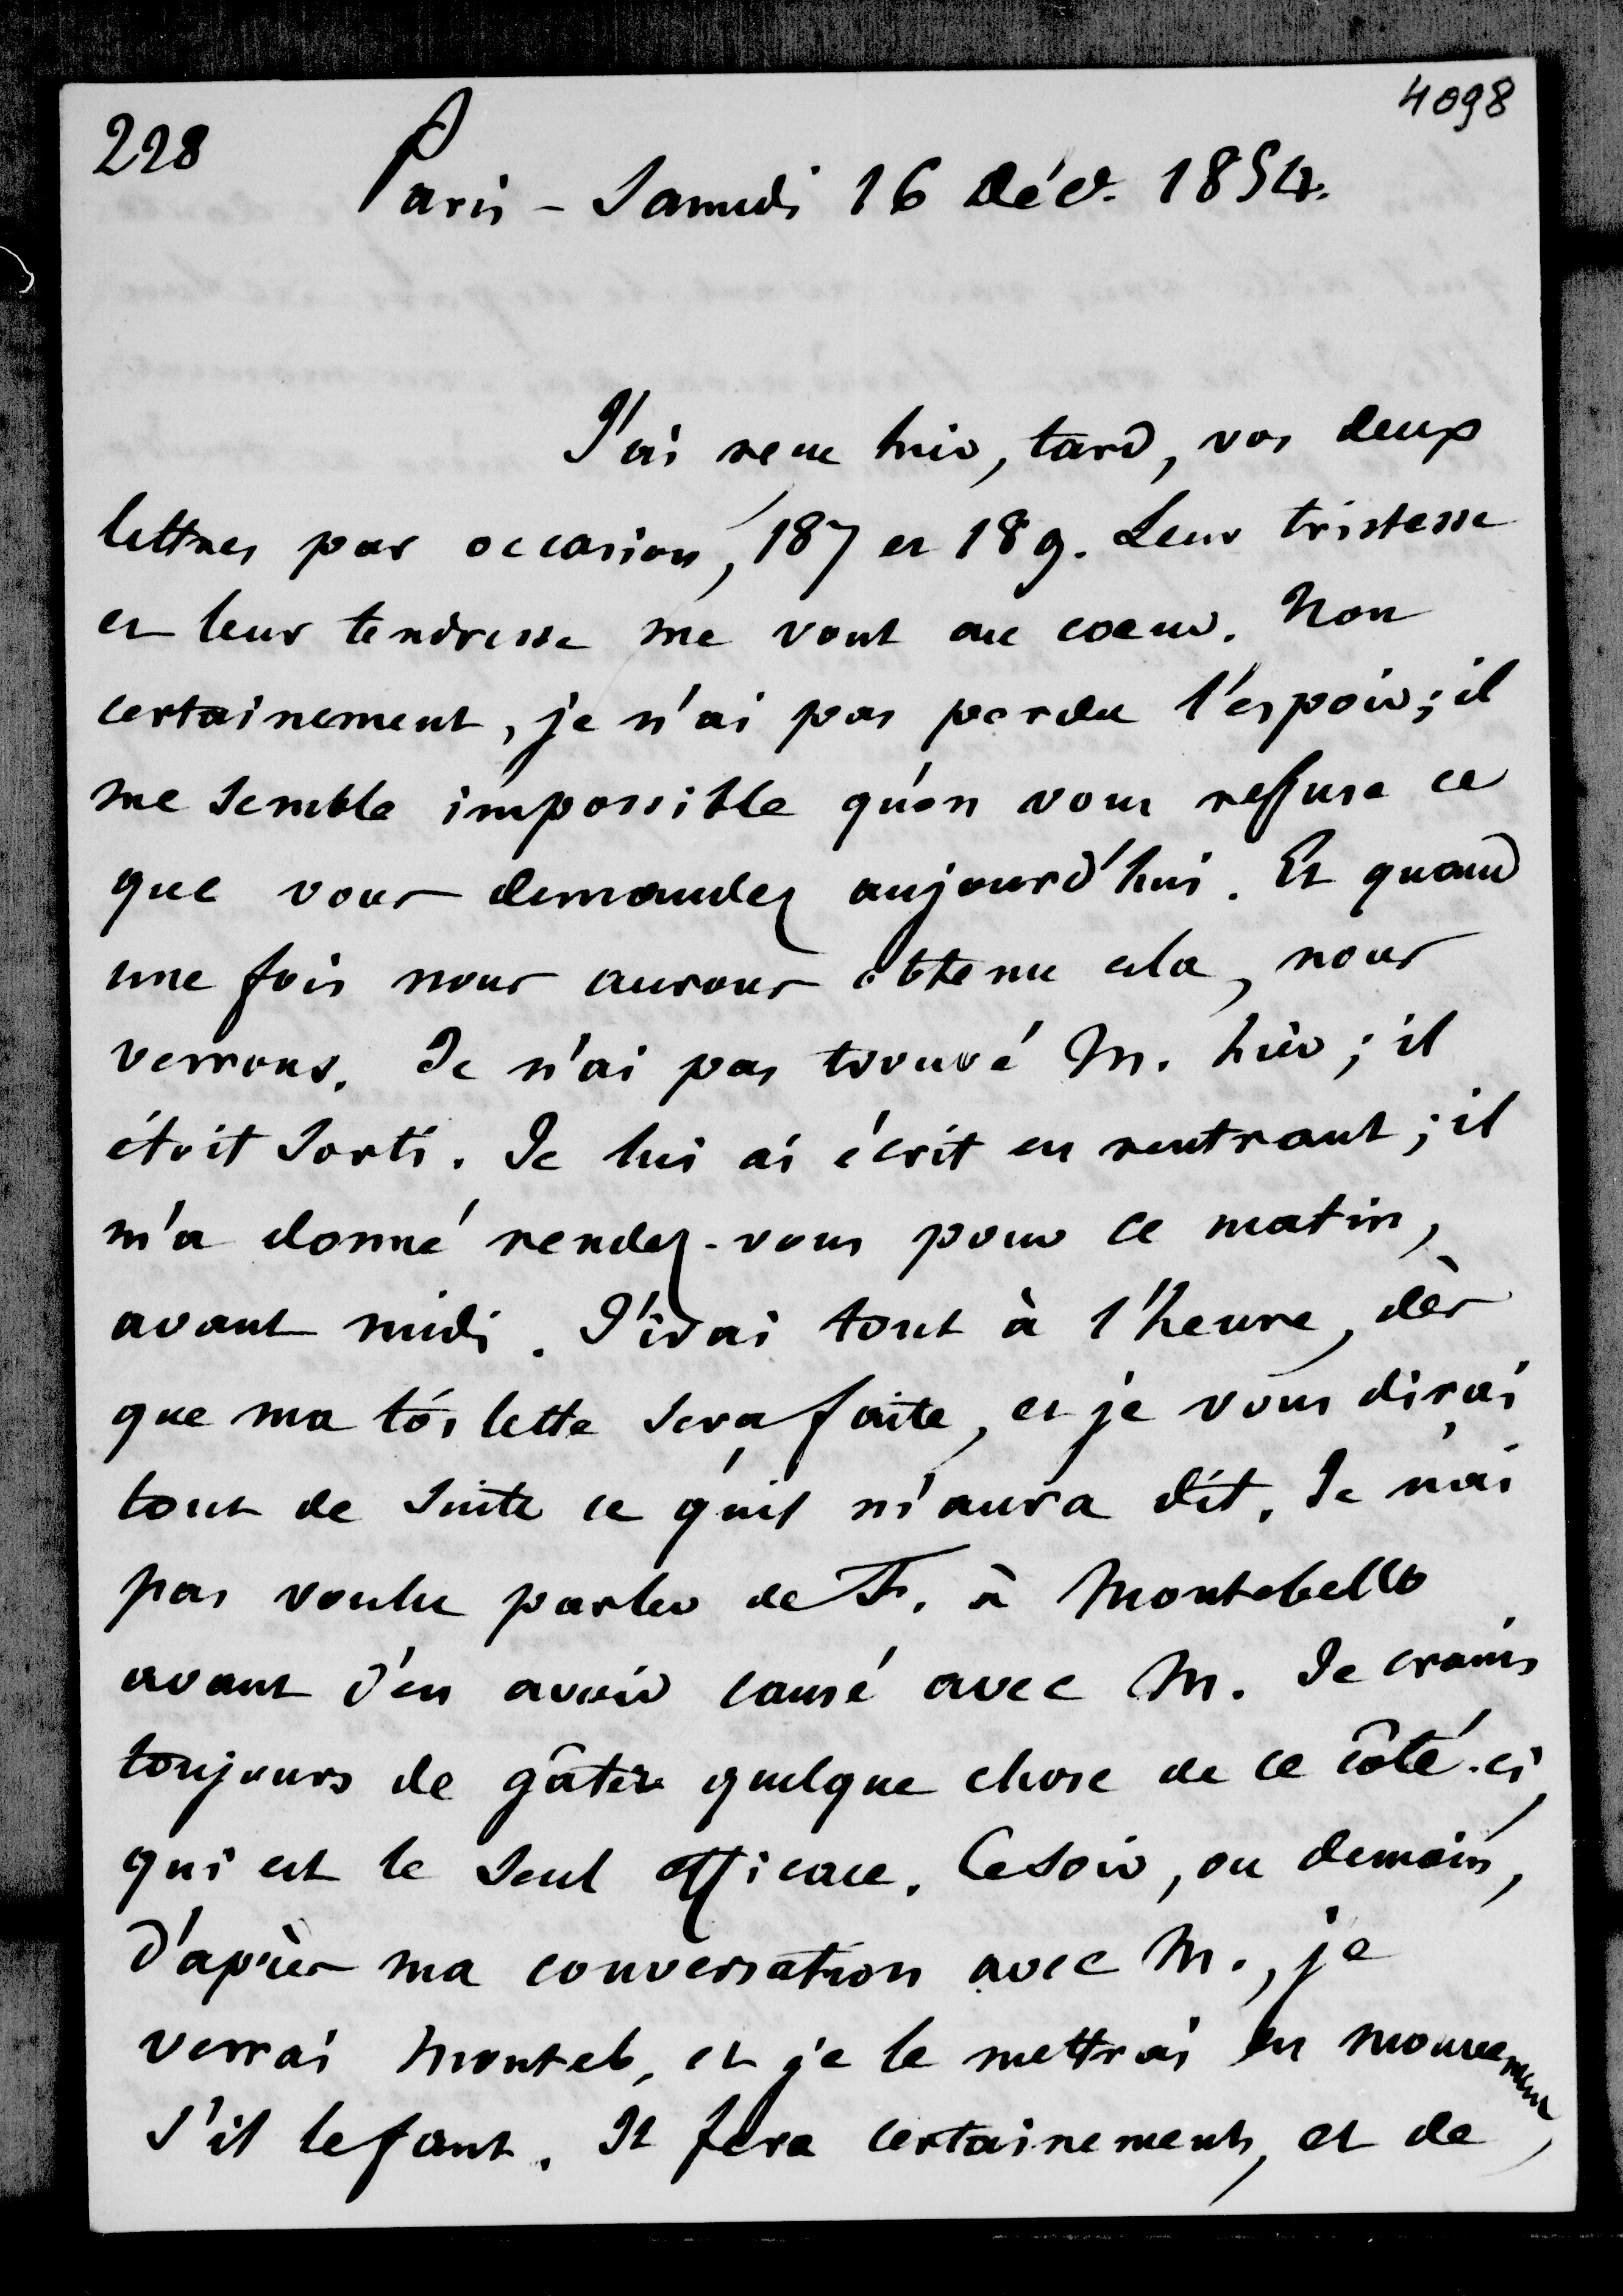 4098
228
Paris - Samedi 16 Déc. 1854.
J'ai reçu hier, tard, vos deux
lettres par occasion, 187 et 189. Leur tristesse
et leur tendresse me vont au coeur. Non
certainement, je n'ai pas perdu l'espoir ; il
me semble impossible qu'on vous refuse ce
que vous demandez aujourd'hui. Et quand
une fois nous aurons obtenu cela, nous
verrons. Je n'ai pas trouvé M. hier ; il
étoit sorti. Je lui ai écrit en rentrant ; il
m'a donné rendez-vous pour ce matin,
avant midi. J'irai tout à l'heure, dès
que ma toilette sera faite, et je vous dirai
tout de suite ce qu'il m'aura dit. Je n'ai
pas voulu parler de F. à Montebello
avant d'en avoir causé avec M. Je crains
toujours de gâter quelque chose de ce côté-ci,
qui est le seul efficace. Ce soir, ou demain,
d'après ma conversation avec M., je
verrai Monteb. et je le mettrai en mouvement
s'il le faut. Il fera certainement, et de